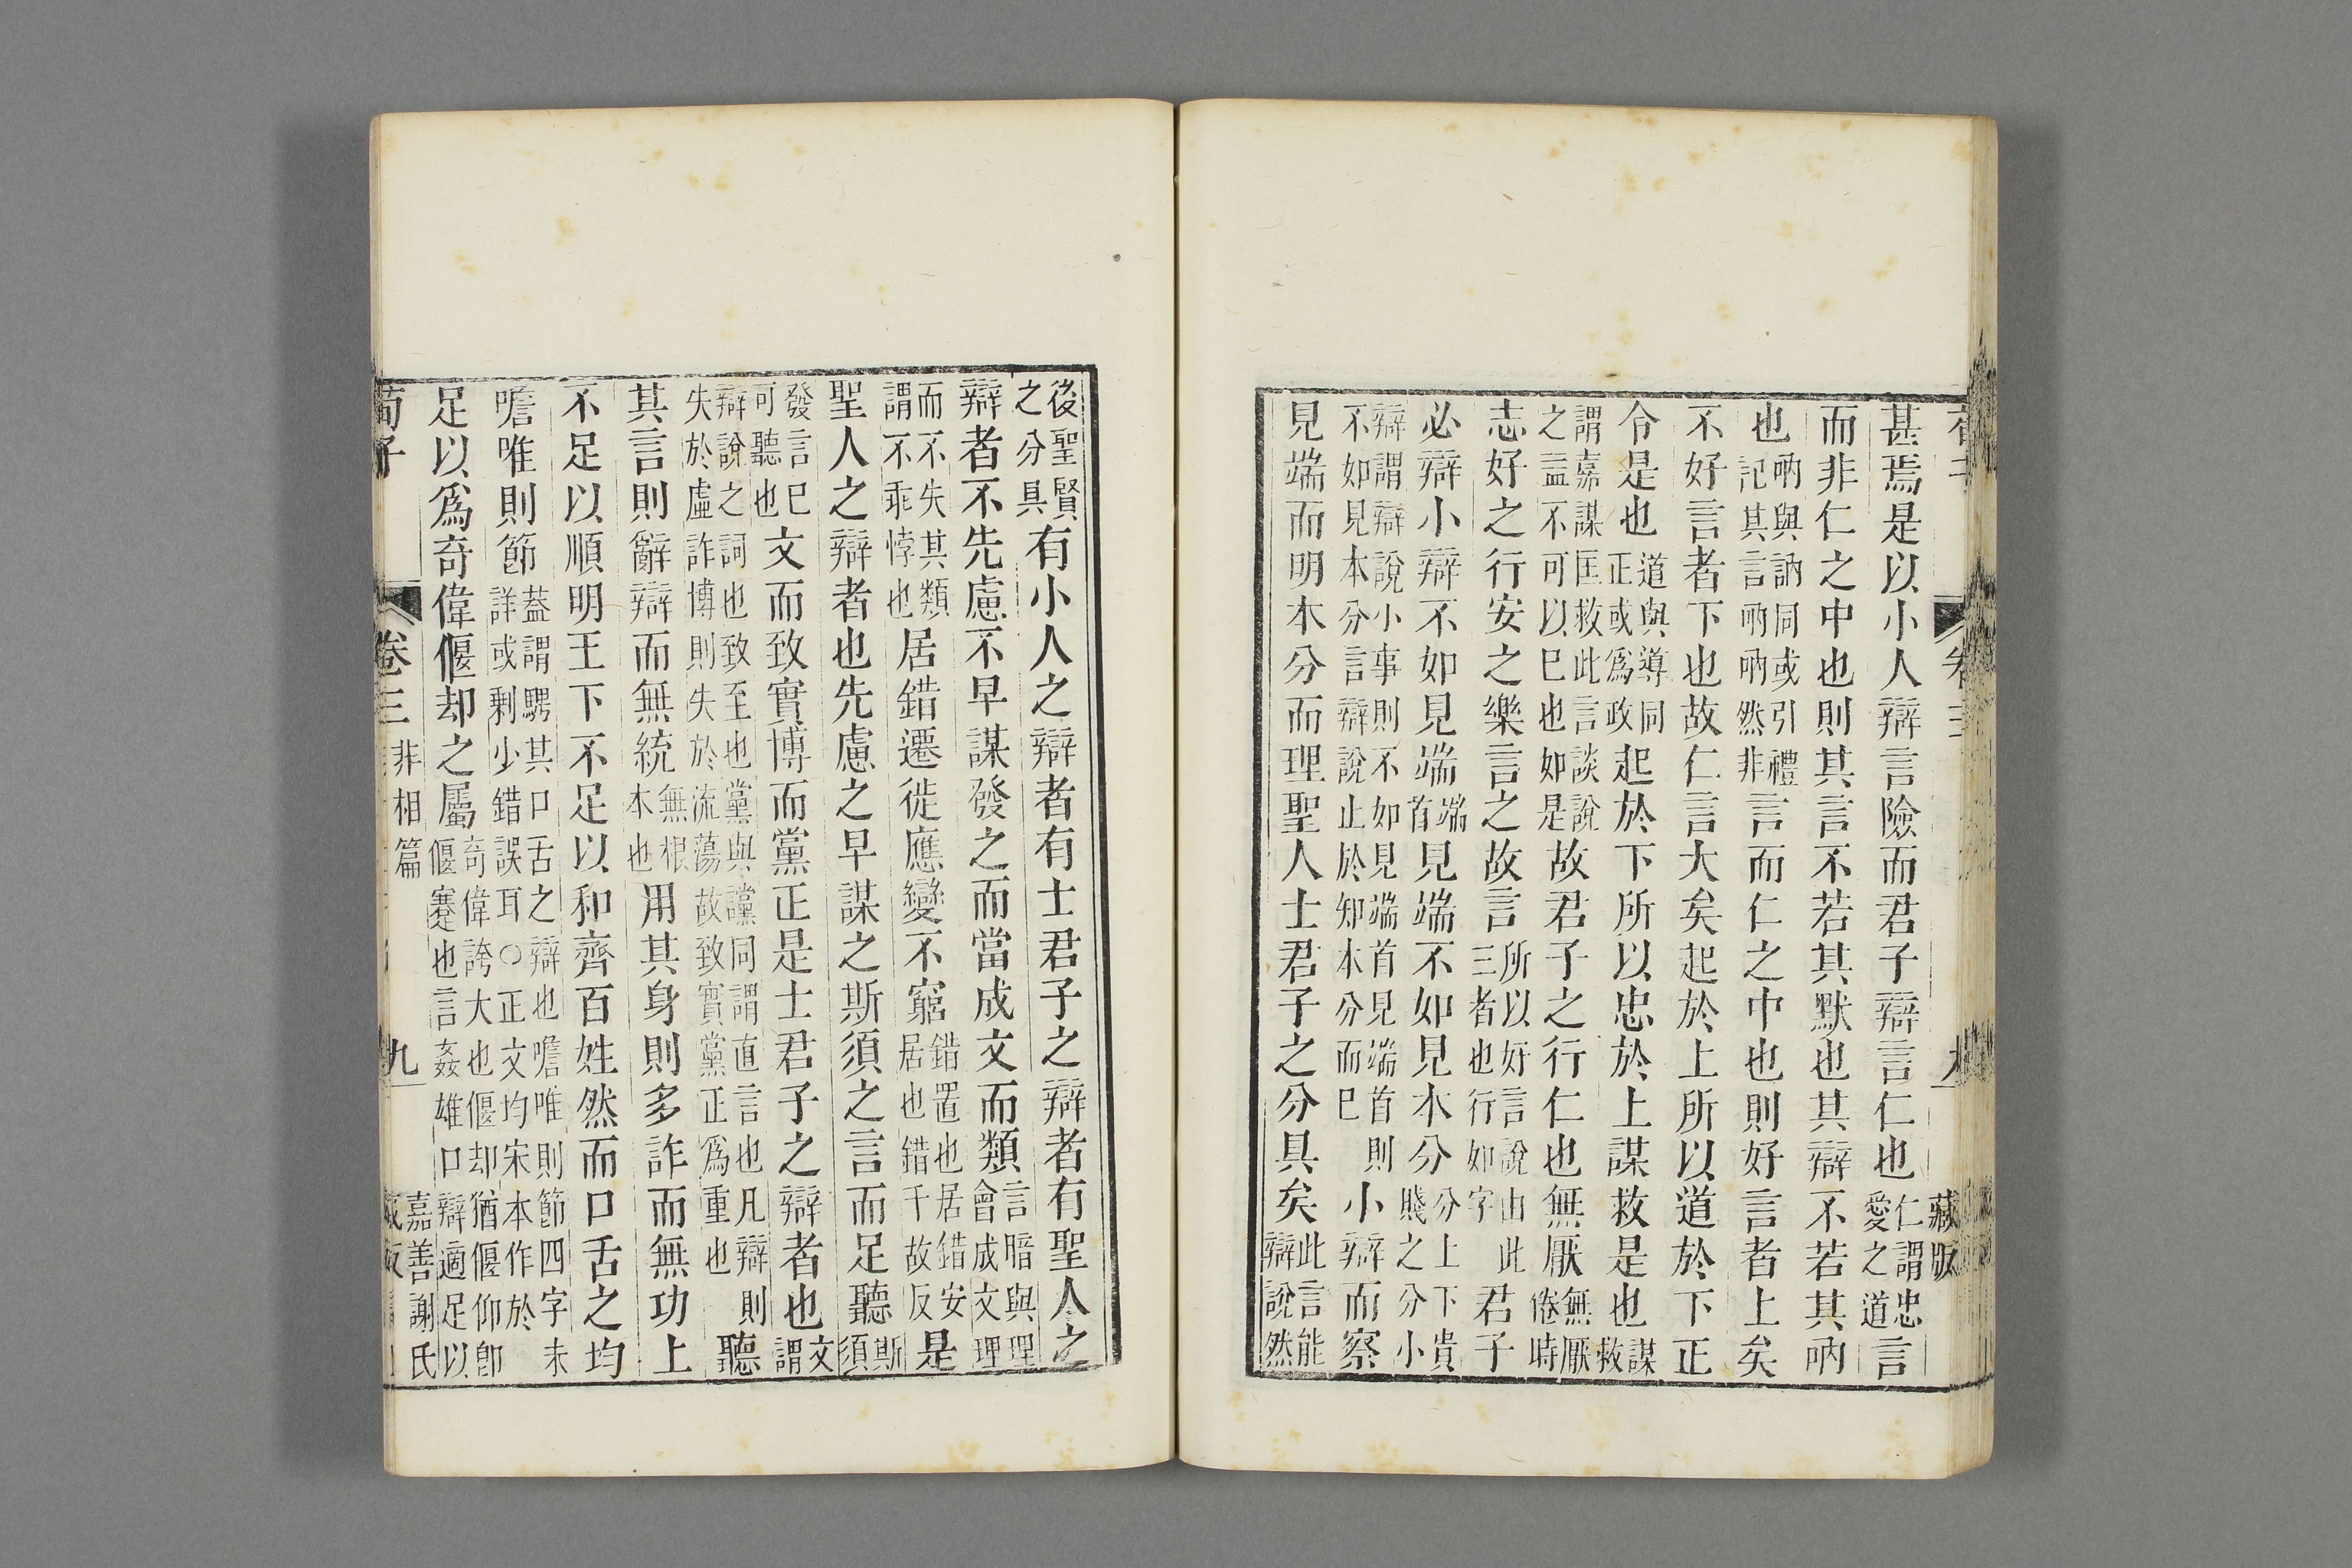 藏版
甚焉是以小人辯言險而君子辯言仁也仁謂忠愛之道言
而非仁之中也則其言不若其默也其辯不若其吶
也吶與訥同或引禮記其言吶吶然非言而仁之中也則好言者上矣
不好言者下也故仁言大矣起於上所以道於下正
令是也道與導同正或爲政起於下所以忠於上謀救是也謀救
謂嘉謀匡救此言談說之益不可以已也如是故君子之行仁也無厭無厭倦時
志好之行安之樂言之故言所以好言說由此三者也行如字君子
必辯小辯不如見端端首見端不如見本分分上下貴賤之分小
辯謂辯說小事則不如見端首見端首則不如見本分言辯說止於知本分而已小辯而察
見端而明本分而理聖人士君子之分具矣此言能辯說然
後聖賢之分具有小人之辯者有士君子之辯者有聖人之
辯者不先慮不早謀發之而當成文而類言暗與理會成文理
而不失其類謂不乖悖也居錯遷徙應變不窮錯置也居錯安居也錯千故反是
聖人之辯者也先慮之早謀之斯須之言而足聽斯須
發言已可聽也文而致實博而黨正是士君子之辯者也文謂
辯說之詞也致至也黨與讜同謂直言也凡辯則失於虛詐博則失於流蕩故致實黨正爲重也聽
其言則辭辯而無統無根本也用其身則多詐而無功上
不足以順明王下不足以和齊百姓然而口舌之均
噡唯則節葢謂騁其口舌之辯也噡唯則節四字未詳或剩少錯誤耳〇正文均宋本作於
足以爲奇偉偃却之屬奇偉誇大也偃却猶偃仰卽偃蹇也言姦雄口辯適足以
荀子 卷三 非相篇 九 嘉善謝氏